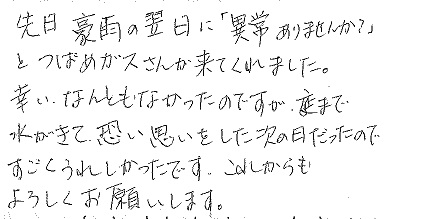 先日 豪雨の翌日に「異常ありませんか?」
とつばめガスさんが来てくれました。
幸い、なんともなかったのですが、庭まで
水がきて、恐い思いをした次の日だったので
すごくうれしかったです。これからも
よろしくお願いします。